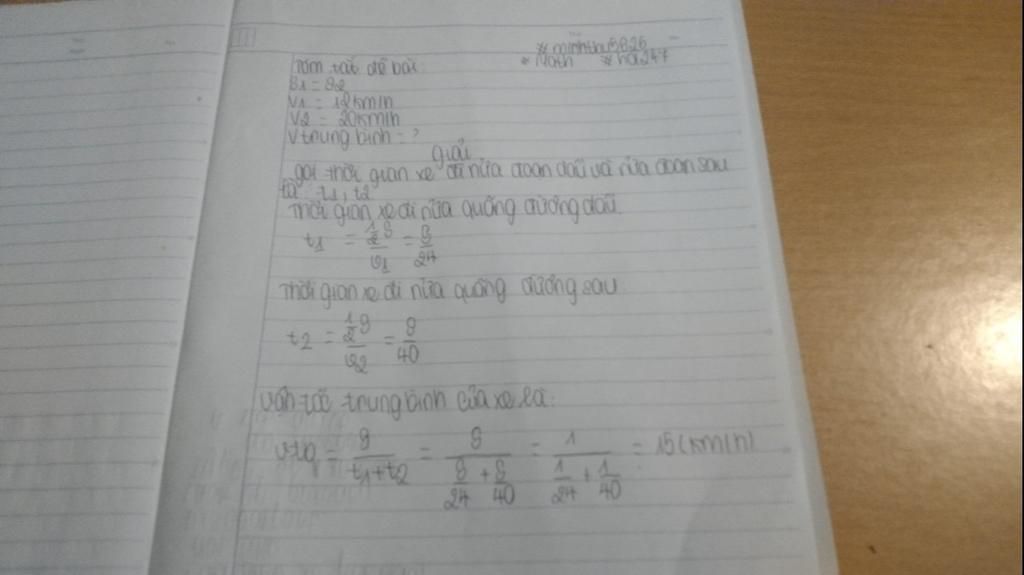 #minhthu5825
#Math #hoi247
Tóm tắt đề bài:
S1 = S2
V1 = 12km/h
V2 = 20km/h
Vtrung bình = ?
giải
gọi thời gian xe đi nửa đoạn đầu và nửa đoạn sau
là t1, t2
Thời gian xe đi nửa quãng đường đầu.
t1 = \frac{\frac{1}{2}S}{v1} = \frac{S}{24}
Thời gian xe đi nửa quãng đường sau
t2 = \frac{\frac{1}{2}S}{v2} = \frac{S}{40}
Vận tốc trung bình của xe là:
vtb = \frac{S}{t1+t2} = \frac{S}{\frac{S}{24} + \frac{S}{40}} = \frac{1}{\frac{1}{24} + \frac{1}{40}} = 15(km/h)